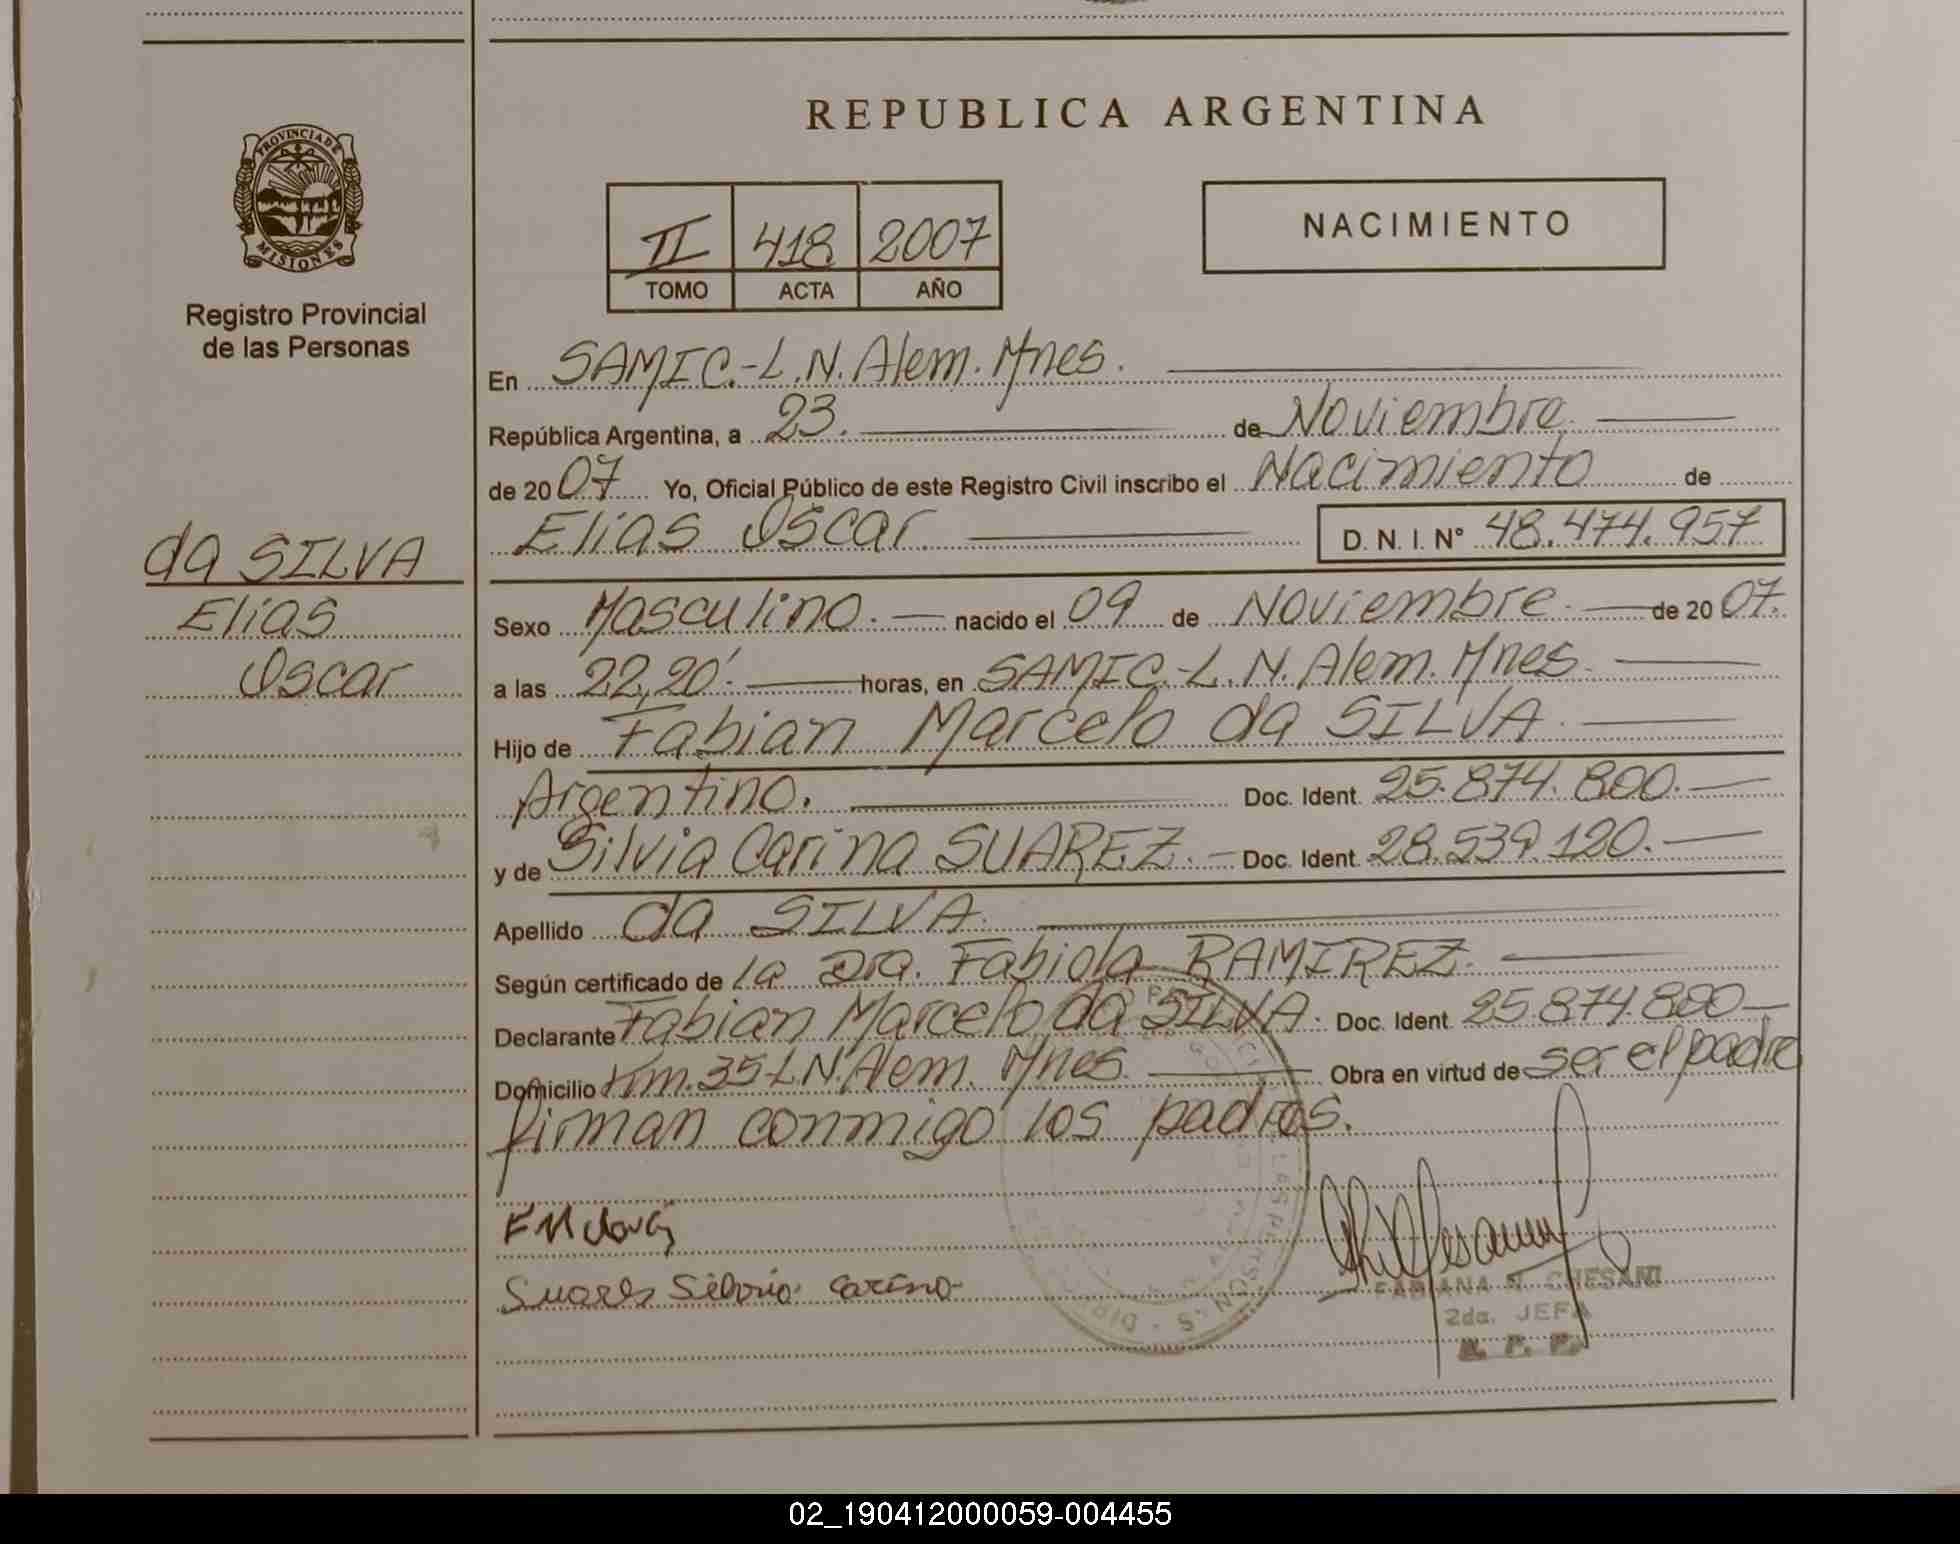 REPUBLICA ARGENTINA
PROVINCIA DE
MISIONES
Registro Provincial
de las Personas
II 418 2007
TOMO ACTA AÑO
NACIMIENTO
En SAMIC.-L.N. Alem. Mnes.
República Argentina, a 23. de Noviembre.
de 20 07 Yo, Oficial Público de este Registro Civil inscribo el Nacimiento de
Elias Oscar D. N. I. N° 48.474.957
da SILVA
Elias
Oscar
Sexo Masculino. nacido el 09 de Noviembre. de 20 07.
a las 22,20'. horas, en SAMIC.-L.N. Alem. Mnes.
Hijo de Fabian Marcelo da SILVA.
Argentino. Doc. Ident. 25.874.800.-
y de Silvia Carina SUAREZ. - Doc. Ident. 28.539.120.-
Apellido da SILVA.
Según certificado de la Dra. Fabiola RAMIREZ.
Declarante Fabian Marcelo da SILVA. Doc. Ident. 25.874.800-
Domicilio Km. 35-L.N. Alem. Mnes. Obra en virtud de ser el padre
firman conmigo los padres.
Suares Silvia Carina
FABIANA N. CHESANI
2da. JEFA
02_190412000059-004455